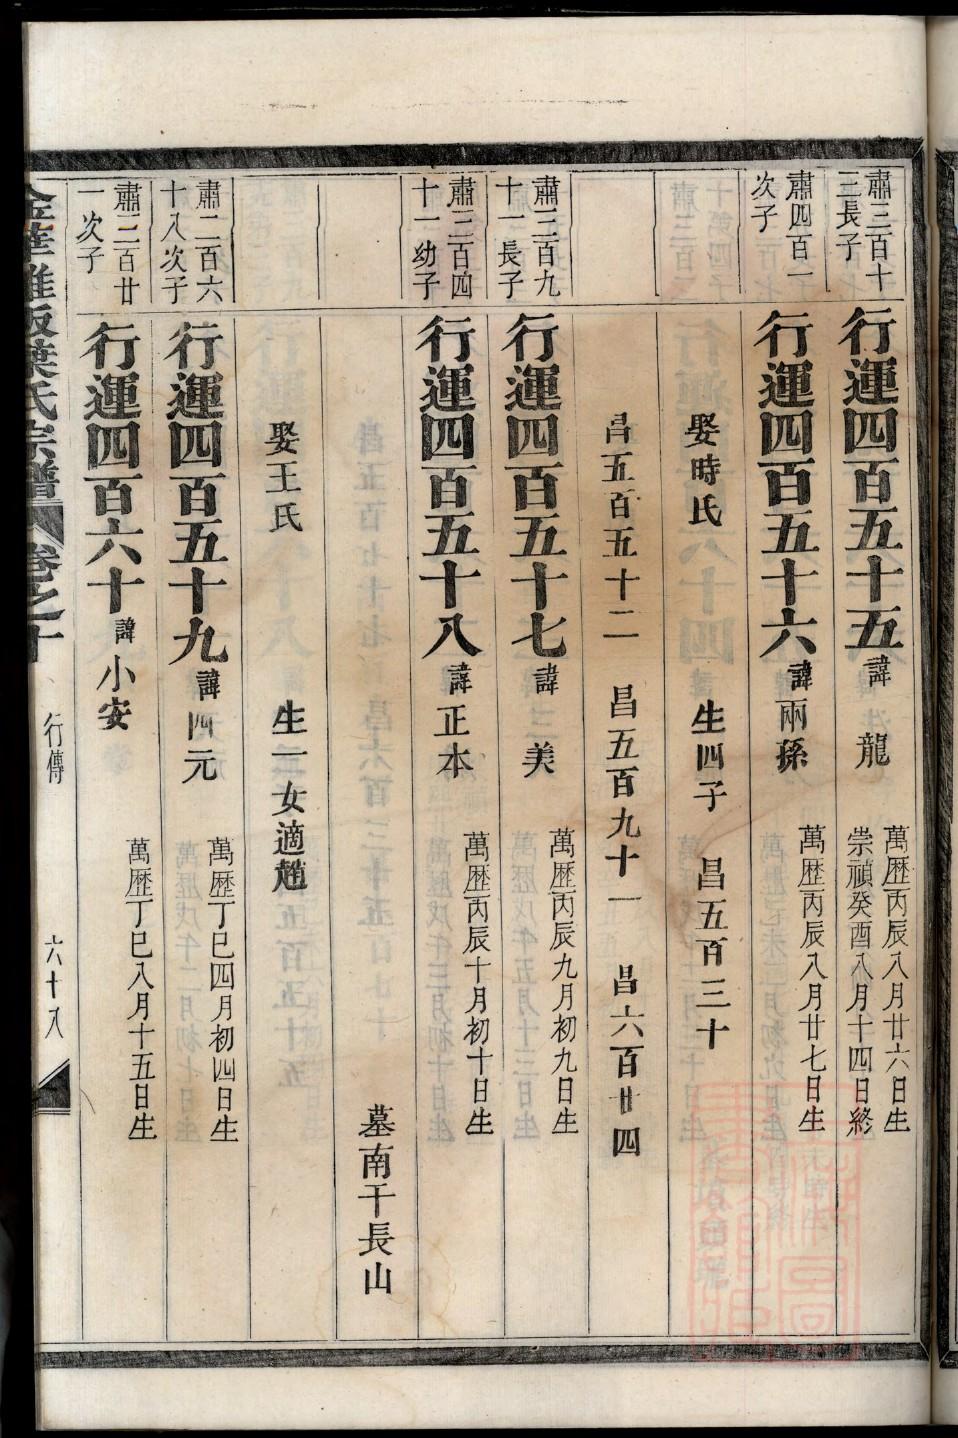 肅三百十
三長子
行運四百五十五
諱
龍
萬歷丙辰八月廿六日生
崇禎癸酉八月十四日終
肅四百一
次子
行運四百五十六
諱
兩孫
萬歷丙辰八月廿七日生
娶時氏
生四子
昌五百三十
昌五百五十二
昌五百九十一
昌六百廿四
肅三百九
十一長子
行運四百五十七
諱
美
萬歷丙辰九月初九日生
肅三百四
十一幼子
行運四百五十八
諱
正本
萬歷丙辰十月初十日生
墓南干長山
娶王氏
生一女適趙
肅二百六
十八次子
行運四百五十九
諱
四元
萬歷丁巳四月初四日生
肅三百廿
一次子
行運四百六十
諱
小安
萬歷丁巳八月十五日生
葉氏宗譜
卷之十
行傳
六十八